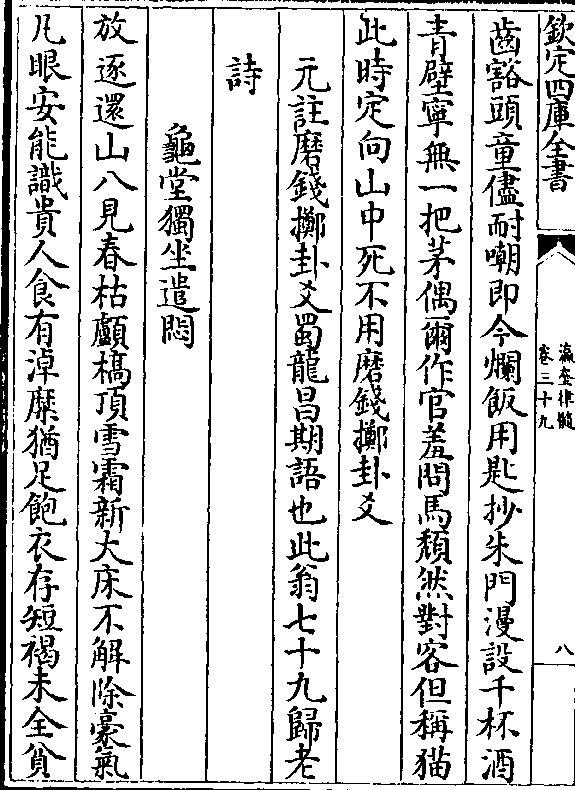 欽定四庫全書
瀛奎律髓
卷三十九
八
齒豁頭童儘耐嘲即今爛飯用匙抄朱門漫設千杯酒
青壁寧無一把茅偶爾作官羞問馬頹然對客但稱猫
此時定向山中死不用磨錢擲卦爻
元註磨錢擲卦爻蜀龍昌期語也此翁七十九歸老
詩
龜堂獨坐遣悶
放逐還山八見春枯顱槁頂雪霜新大床不解除豪氣
凡眼安能識貴人食有淖糜猶足飽衣存短褐未全貧